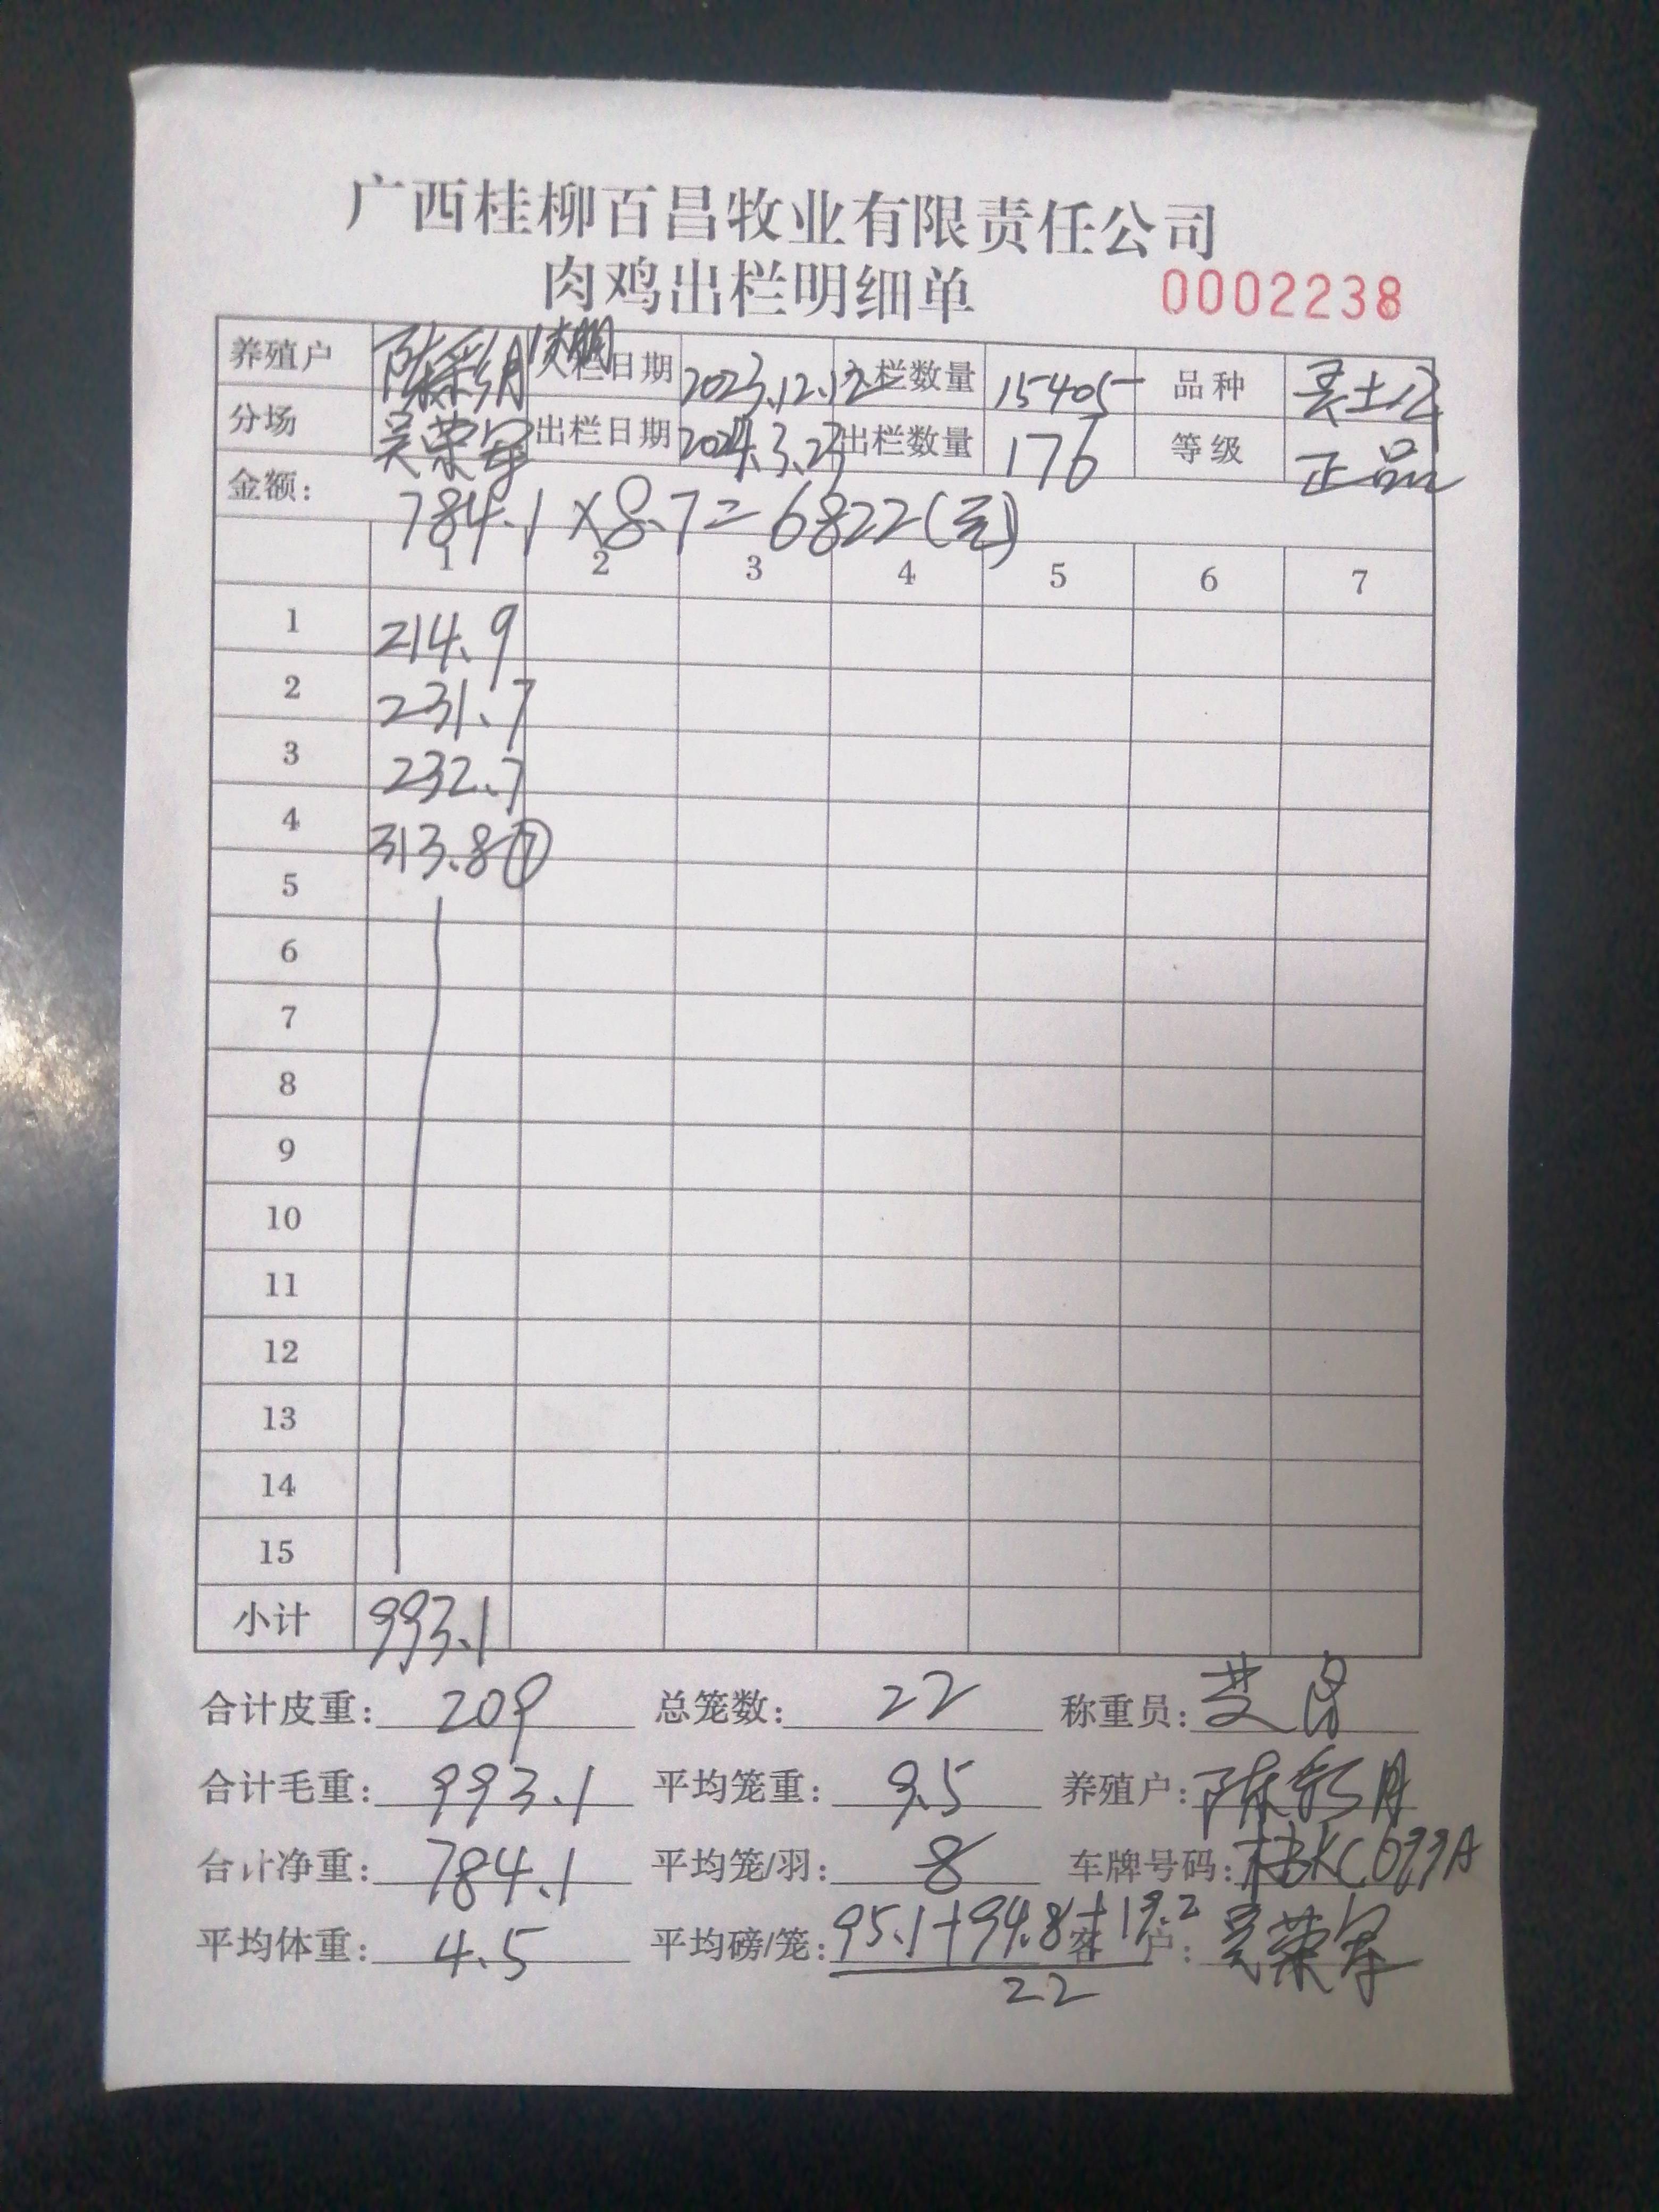 广西桂柳百昌牧业有限责任公司
肉鸡出栏明细单 0002238
养殖户 陈彩月 入栏日期 2023.12.12 入栏数量 15405 品种
分场 吴荣军 出栏日期 2024.3.23 出栏数量 176 等级 正品
金额: 784.1×8.7=6822(元)
1 2 3 4 5 6 7
1 214.9
2 231.7
3 232.7
4 313.8⑦
5
6
7
8
9
10
11
12
13
14
15
小计 993.1
合计皮重: 209 总笼数: 22 称重员:
合计毛重: 993.1 平均笼重: 9.5 养殖户: 陈彩月
合计净重: 784.1 平均笼/羽: 8 车牌号码:
平均体重: 4.5 平均磅/笼: 95.1+94.8+19.2 客户: 吴荣军
22